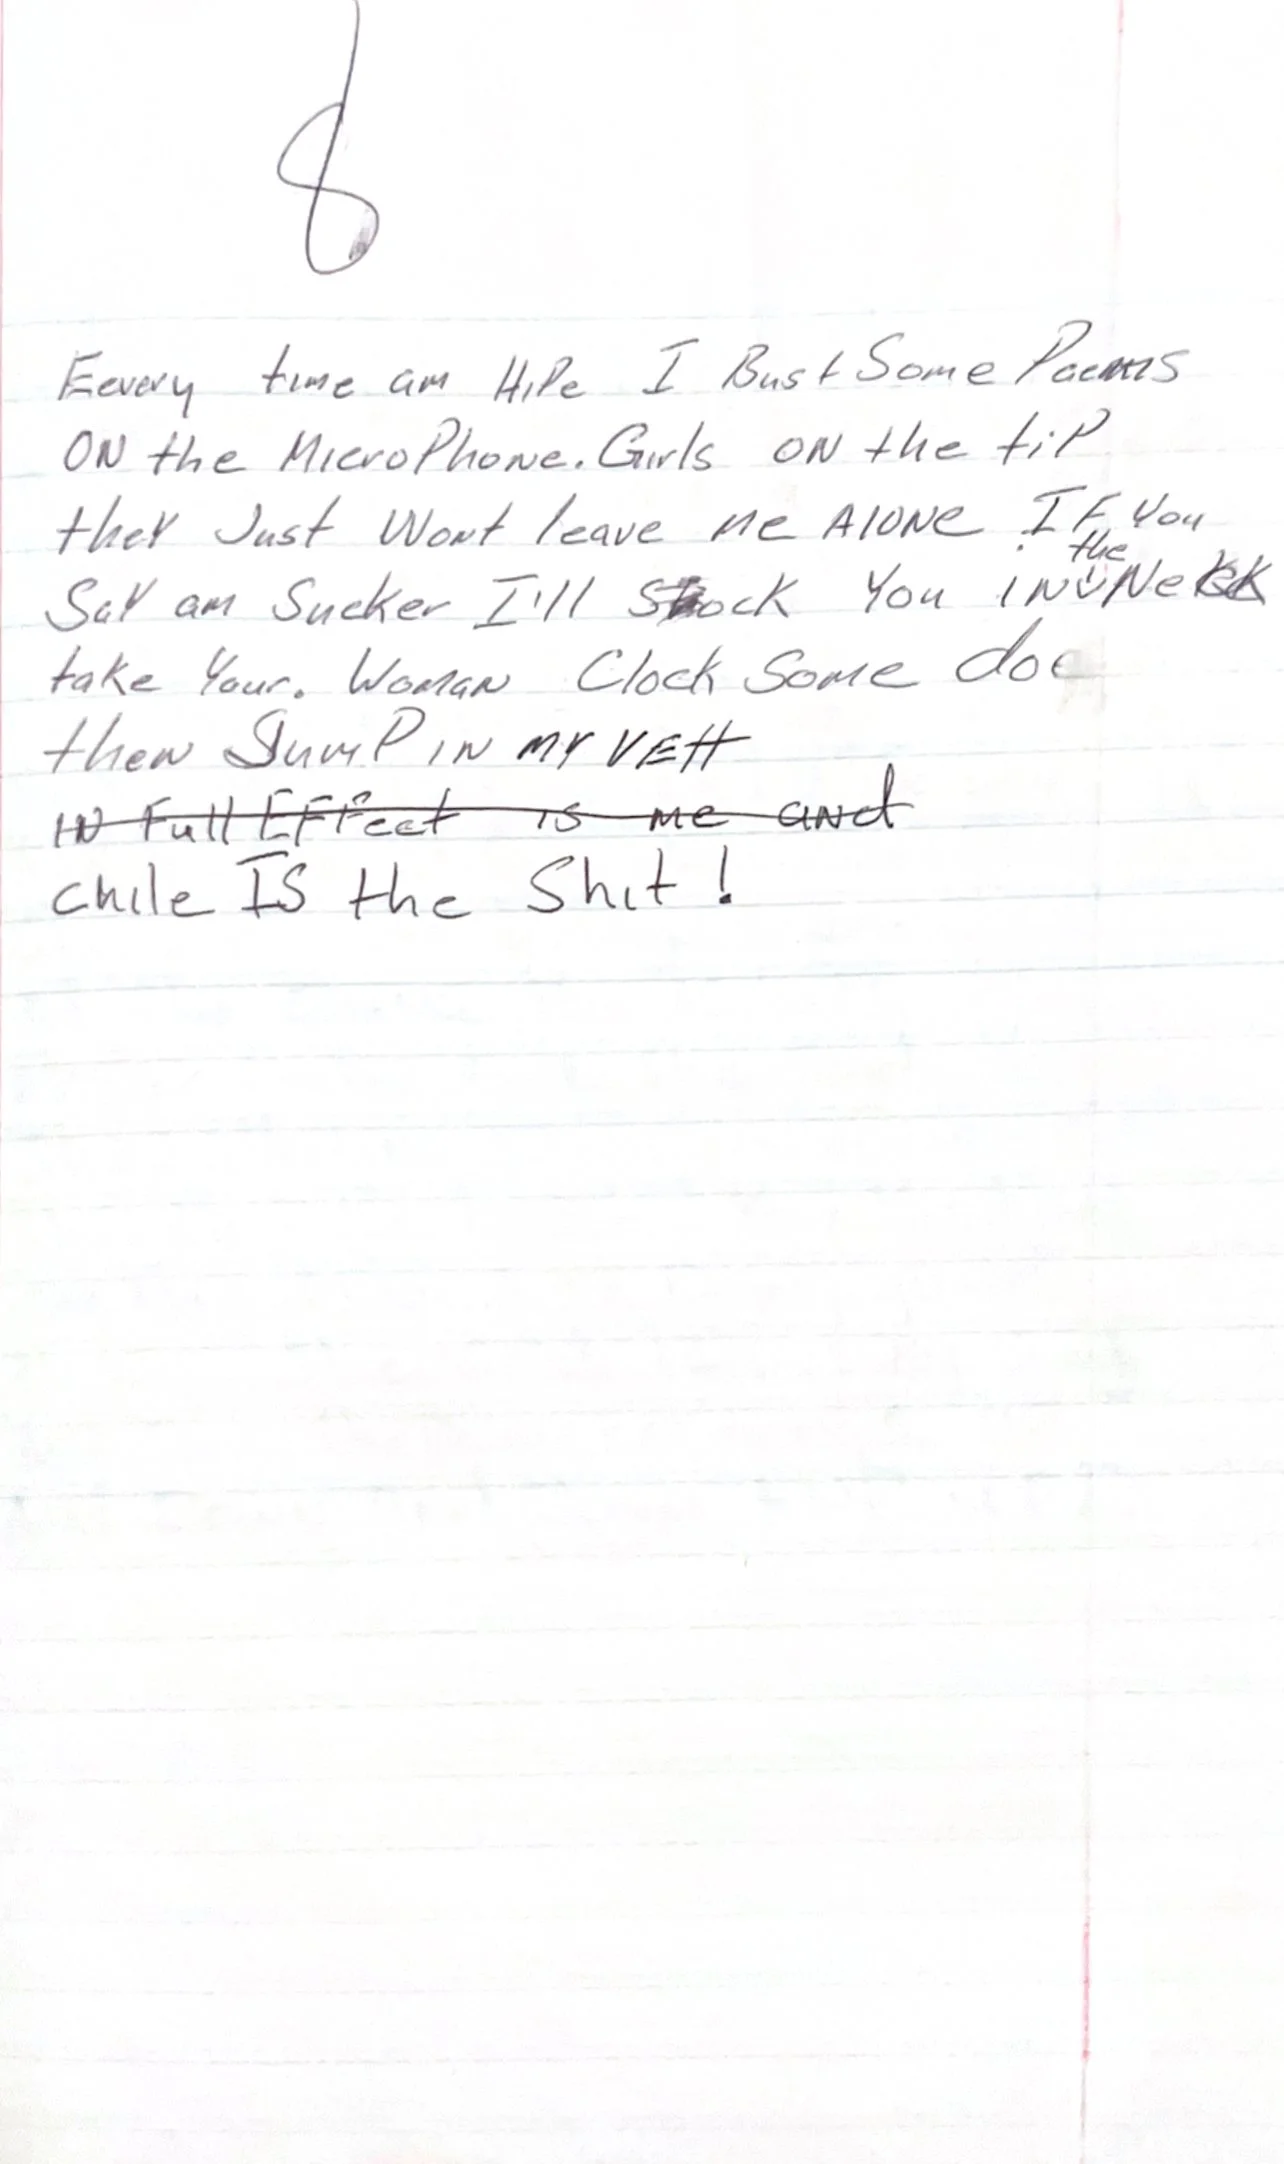 8
Eevery time am HiPe I Bust Some Paems
ON the MicroPhone. Girls ON the tiP
theY Just Wont leave me AlONe. IF You
SaY am Sucker I'll Sock You iN the Neck
take Your. WomaN Clock Some doe
theN JumP iN mY VEtt
IN Full EFFect is me aNd
chile IS the Shit!